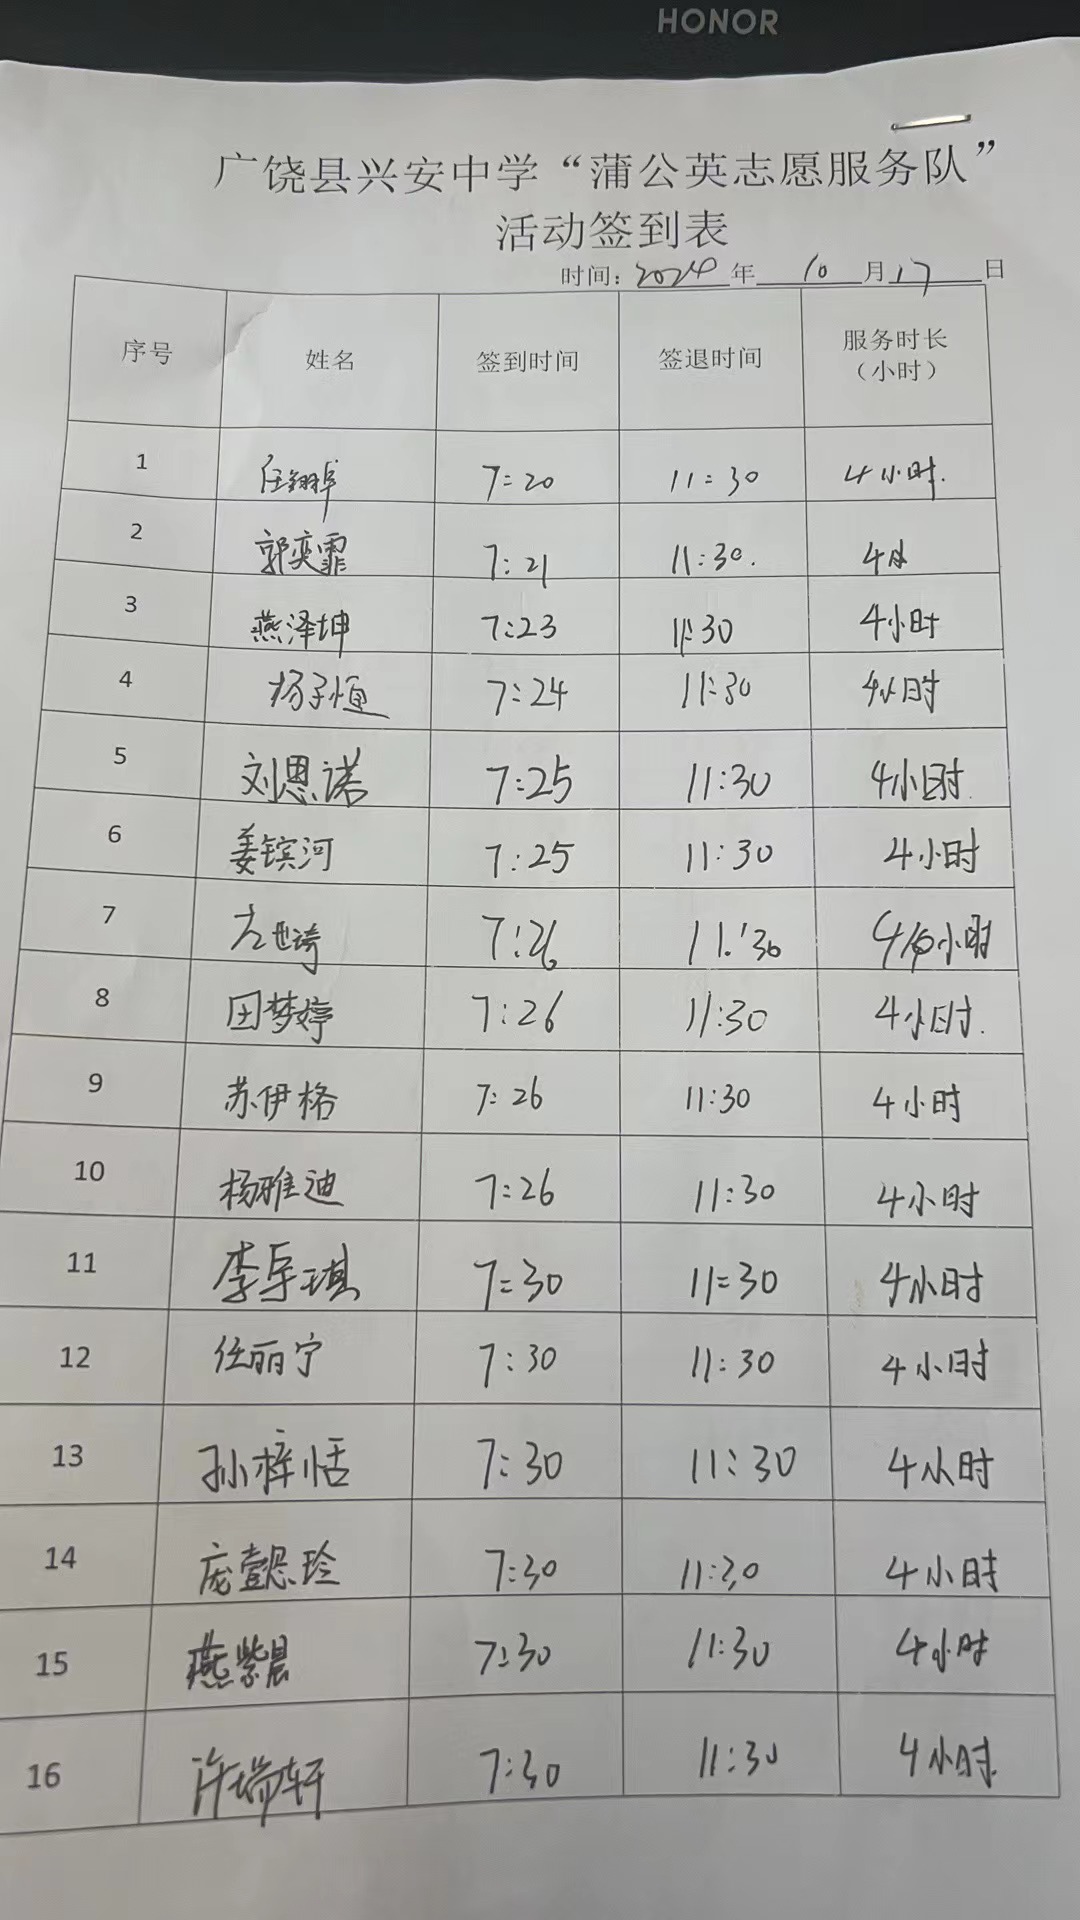 HONOR
广饶县兴安中学“蒲公英志愿服务队”
活动签到表
时间：2024年 10 月 17 日
序号 姓名 签到时间 签退时间 服务时长（小时）
1 任翔 7:20 11:30 4小时.
2 郭奕霏 7:21 11:30. 4小
3 燕泽坤 7:23 11:30 4小时
4 杨子恒 7:24 11:30 4小时
5 刘恩诺 7:25 11:30 4小时.
6 姜镔河 7:25 11:30 4小时
7 世琦 7:26 11:30 4小时
8 田梦婷 7:26 11:30 4小时.
9 苏伊格 7:26 11:30 4小时
10 杨雅迪 7:26 11:30 4小时
11 李导琪 7:30 11:30 4小时
12 任丽宁 7:30 11:30 4小时
13 孙梓恬 7:30 11:30 4小时
14 庞懿珍 7:30 11:30 4小时
15 燕紫晨 7:30 11:30 4小时
16 许瑞轩 7:30 11:30 4小时